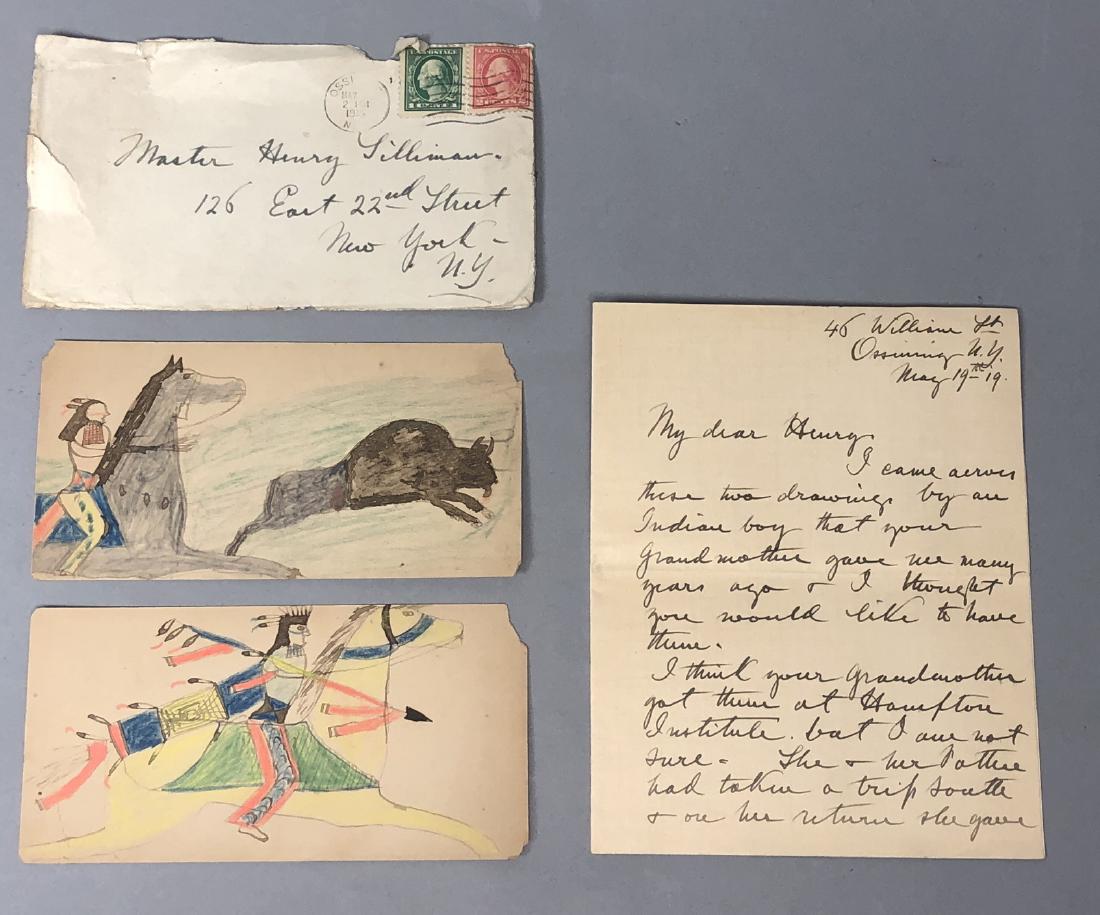 OSSI
MAY
2
19
N
U.S. POSTAGE
U.S. POSTAGE
Master Henry Silliman.
126 East 22nd Street
New York -
N.Y.
46 William St
Ossining N.Y.
May 19th 19.
My dear Henry,
I came across
these two drawings by an
Indian boy that your
Grandmother gave me many
years ago & I thought
you would like to have
them.
I think your Grandmother
got them at Hampton
Institute. but I am not
sure - She & her Father
had taken a trip South
& on her return she gave